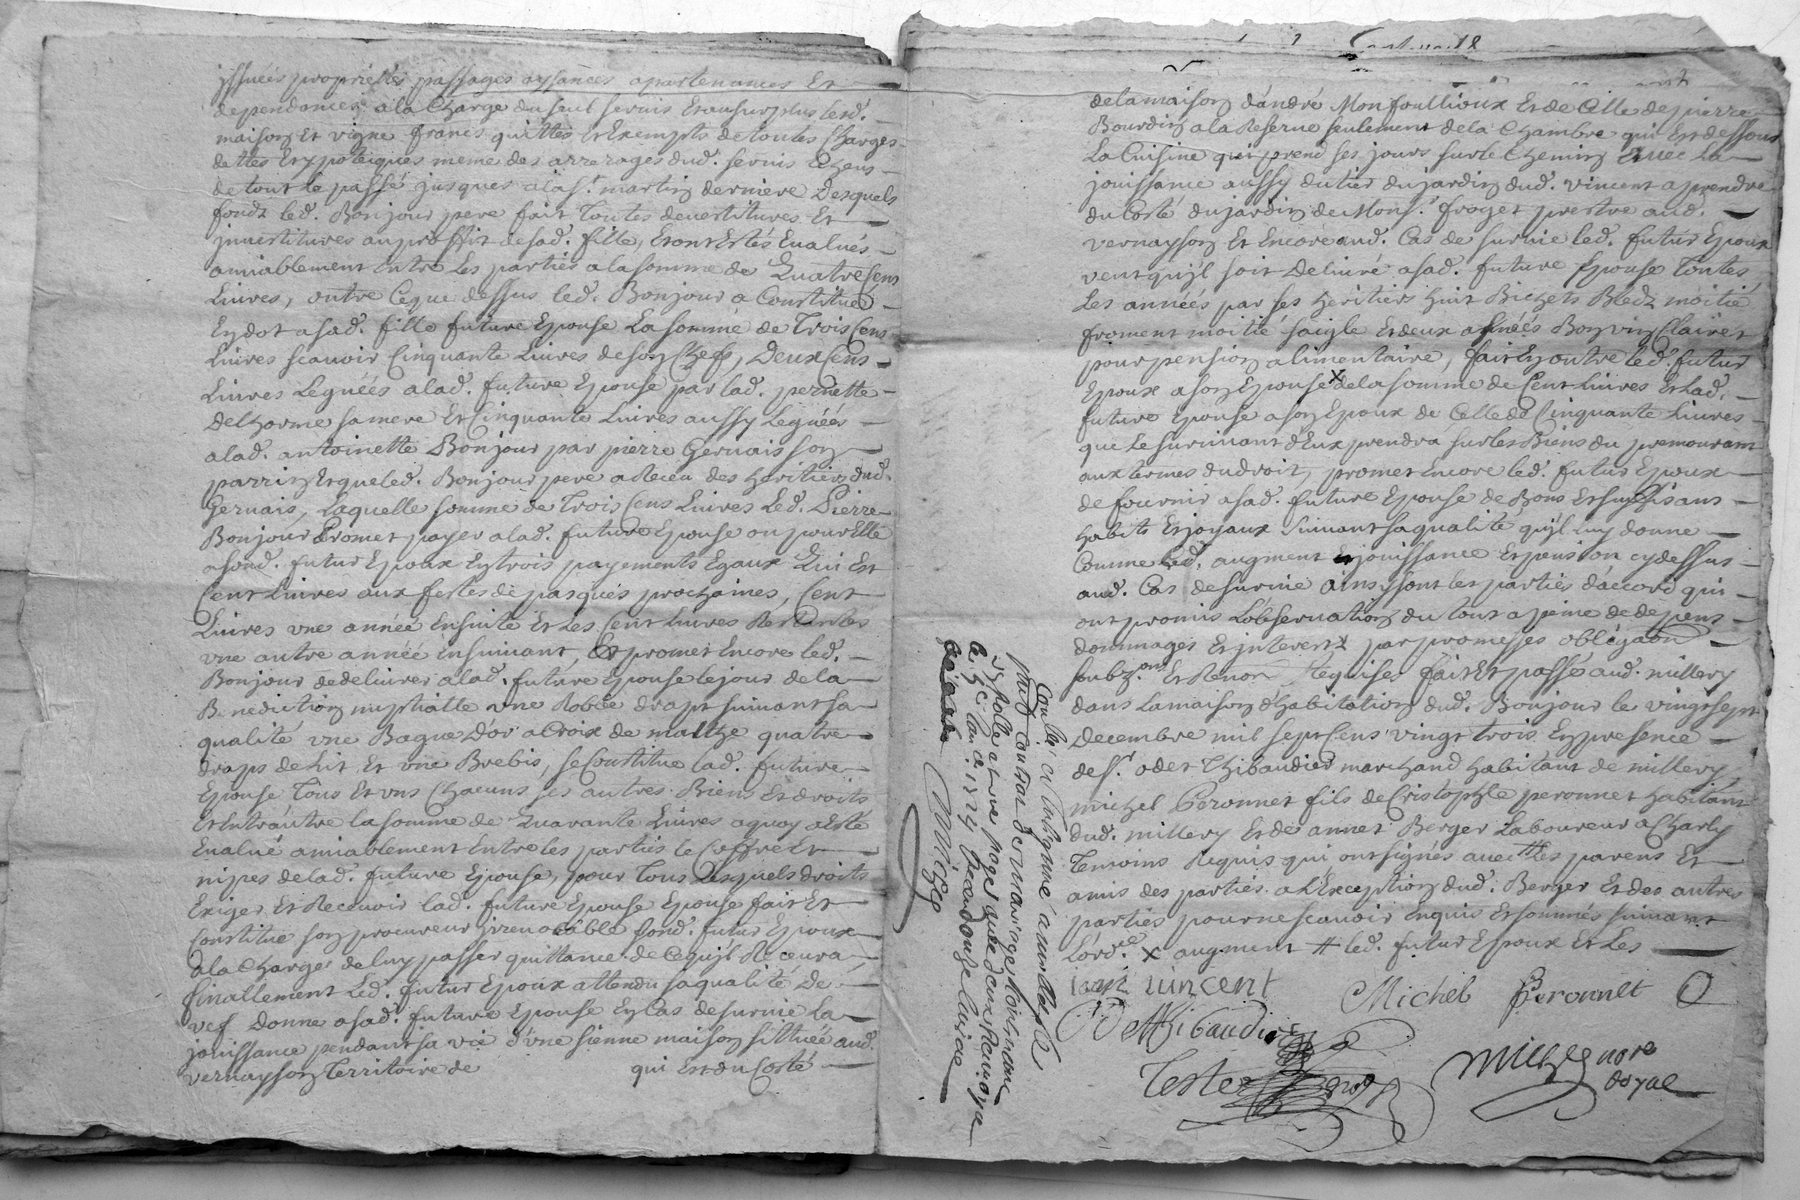 yssuées proprietés passages aysances apartenances Et
dependances, a la Charge du seul servis Et au surplus lesd.
maison Et vigne francs quittes Et Exempts de toutes Charges
dettes Et ypoteques meme des arrerages dud. servis Echeus
de tout le passé jusques a la st. martin derniere Desquels
fondz led. Bonjour pere fait Toutes devertitures Et
jnvertitures au proffit de sad. fille, Et ont Estés Evalués
amiablement Entre Les parties a la somme de Quatre Cens
Livres, outre Ce que dessus led. Bonjour a Constitué
En dot a sad. fille future Epouse La somme de Trois Cens
Livres scavoir Cinquante Livres de son Chefs, Deux Cens
Livres Leguées a lad. future Epouse par lad. pernette
Delhorme sa mere Et Cinquante Livres aussy Leguées
a lad. antoinette Bonjour par pierre Gervais son
parrin Et que led. Bonjour pere a Receu des heritiers dud.
Gervais, Laquelle somme de Trois Cens Livres Led. Pierre
Bonjour Promet payer a lad. future Epouse ou pour Elle
a sond. futur Epoux En trois payements Egaux Qui Est
Cent Livres aux festes de pasques prochaines, Cent
Livres vne année Ensuite Et Les Cent Livres Restantes
vne autre année Ensuivant, Et promet Encore led.
Bonjour de delivrer a lad. future Epouse le jour de la
Benediction nuptialle vne Robbe drapt suivant sa
qualité vne Bague D'or a Croix de malthe quatre
draps de Lit Et vne Brebis, se Constitue lad. future
Epouse Tous Et vns Chacuns ses autres Biens Et droits
Et Entr'autre la somme de Quarante Livres a quoy a Esté
Evalué amiablement Entre les parties le Coffre Et
nipes de lad. future Epouse, pour Tous Lesquels droits
Exiger Et Recevoir lad. future Epouse Epouse fait Et
Constitue son procureur jrrevocable sond. futur Epoux
a la Charges de luy passer quittance de Ce qu'jl Recevra,
finallement Led. futur Epoux attendu sa qualité De
vef Donne a sad. future Epouse En Cas de survie La
jouissance pendant sa vie d'vne sienne maison sittuée aud.
vernayson Territoire de qui Est du Costé
de la maison d'andré Monfoullioux Et de Celle de pierre
Bourdin a la Reserve seulement de la Chambre qui Est dessous
La Cuisine qui prend ses jours sur le Chemin avec La
jouissance aussy du tier du jardin dud. vincent a prendre
du Costé du jardin de Monsr. froget prestre aud.
vernayson Et Encore aud. Cas de survie led. futur Epoux
veut qu'jl soit Delivré a sad. future Epouse Toutes
Les années par ses heritiers huit Bichets Bledz moitié
froment moitié saigle Et deux asnées Bon vin Clairet
pour pension alimentaire, fait En outre led. futur
Epoux a son Epouse x de la somme de Cent Livres Et lad.
future Epouse a son Epoux de Celle de Cinquante Livres
que Le survivant d'Eux prendra sur les Biens du premourant
aux termes du droit, promet Encore led. futur Epoux
de fournir a sad. future Epouse de Bons Et suffisans
habits Et joyaux suivant sa qualité qu'jl luy donne
Comme Led. augment Et jouissance Et pension cy dessus
aud. Cas de survie ainsy sont les parties d'accord qui
ont promis L'observation du tout a peine de depens
dommages Et jnterest par promesses obligaon
soubz.ons Et Renon. Requises fait Et passé aud. millery
dans La maison d'habitation dud. Bonjour le vingt sept
Decembre mil sept Cens vingt trois En presence
de sr. odet Thibaudier marchand habitant de millery,
michel Peronnet fils de Cristophle peronnet habitant
dud. millery Et de annet Berger Laboureur a Charly
Temoins Requis qui ont signés avec # les parens Et
amis des parties a l'Exception dud. Berger Et des autres
parties pour ne scavoir Enquis Et sommés suivant
L'ordce. x augment # led. futur Epoux Et Les
vincent Michel Peronnet
Thibaudier
Controllé a millery
contrat de mariage